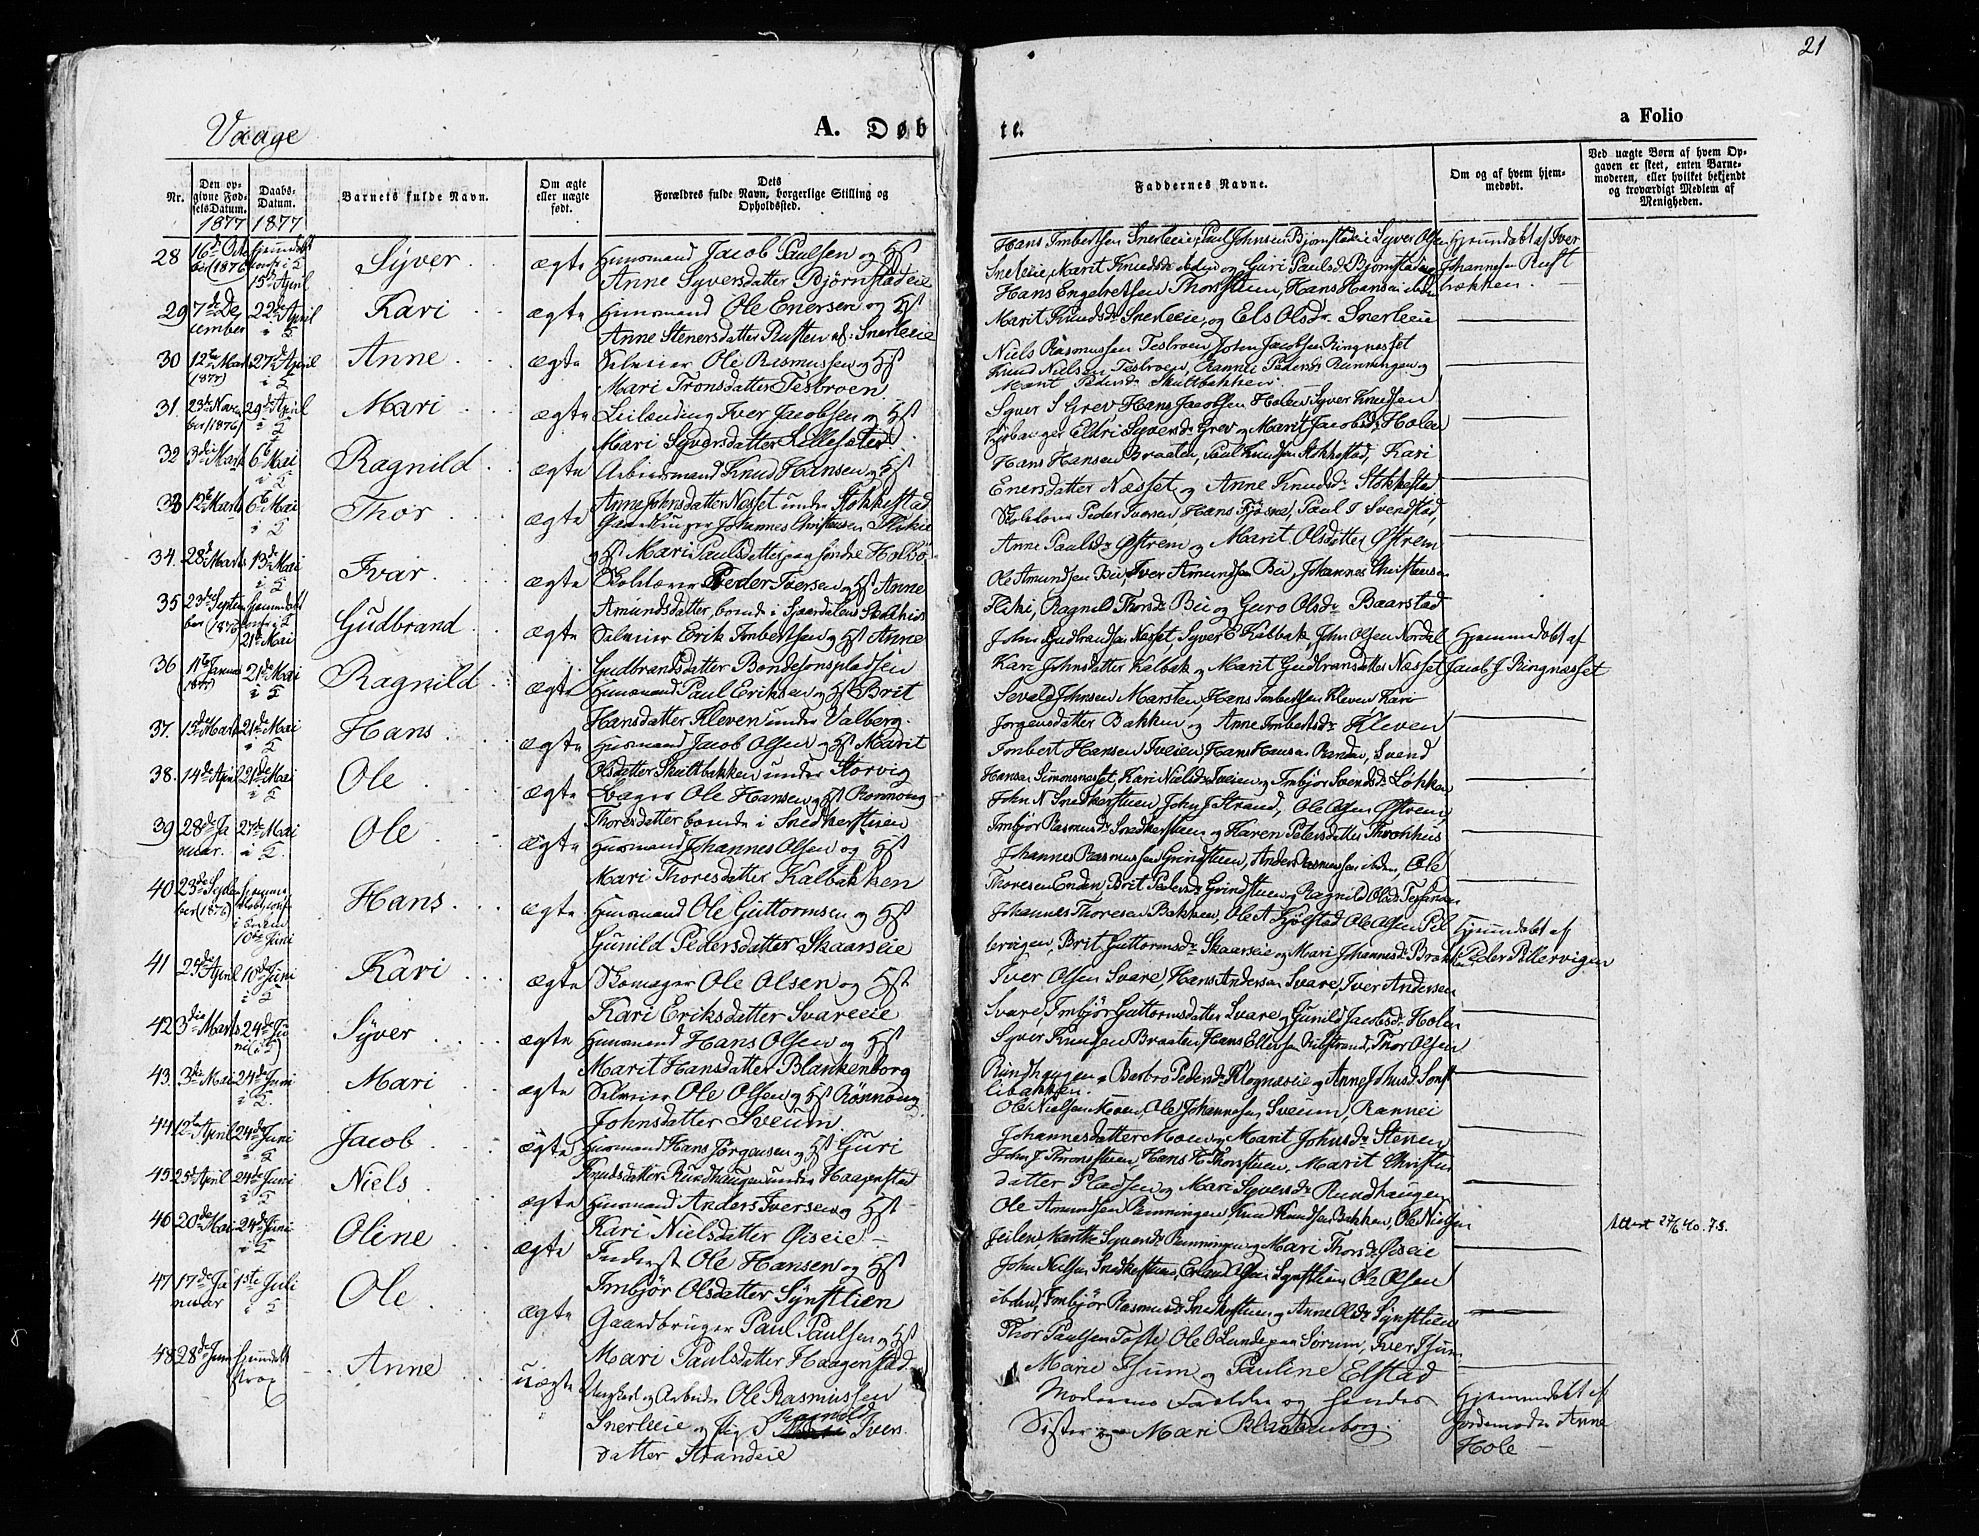 21
Vaage
A. Døbte.
a Folio
Nr.
Den opgivne FødselsDatum.
1877
Daabs-Datum.
1877
Barnets fulde Navn.
Om ægte eller uægte født.
Dets Forældres fulde Navn, borgerlige Stilling og Opholdssted.
Faddernes Navne.
Om og af hvem hjemmedøbt.
Ved uægte Børn af hvem Opgaven er skeet, enten Barnemoderen, eller hvilket bekjendt og troværdigt Medlem af Menigheden.
28 16de Octo ber (1876) 15de April Syver ægte Huusmand Jacob Paulsen og Hst
Anne Syversdatter Bjørnstadeie
Hans Imbertsen Snerleeie, Paul Johnsen Bjørnstadeie Syver Olsen
Snerleeie, Marit Knudsdr ibden og Guri Paulsdr Bjørnstadeie
Hjemmdøbt af Iver
Johannesen Rust
bakken.
29 7de De cember 22de April i K Kari ægte Huusmand Ole Enersen og Hst
Anne Stenersdatter Rusten af Snerleeie
Hans Engebretsen Thorsteen, Hans Hansen ibden
Marit Knudsdr Snerleeie, og Els Olsdr Snerleeie
30 12te Marts (1877) 27de April i K Anne ægte Selveier Ole Rasmussen og Hst
Mari Tronsdatter Tesbroen
Niels Rasmussen Tesbroen, John Jacobsen Ringnesset
Knud Nielsen Tesbroen, Rannei Pedersdr Runningen og
Marit Pedersdr Skultbakken
31. 23de Novem ber (1876) 29de April i K Mari ægte Leilænding Iver Jacobsen og Hst
Mari Syversdatter Lillesæter
Syver S Grev Hans Jacobsen Holen Syver Knudsen
Eldri Syversdr Grev og Marit Jacobsdr Holen
32 3die Marts 6te Mai i K Ragnild ægte Arbeidsmand Knud Hansen og Hst
Anne Johnsdatter Næsset under Stokkestad
Hans Hansen Braaten, Paul Knudsen Stokkestad, Kari
Enersdatter Næsset og Anne Knudsdr Stokkestad
33 12te Marts 6te Mai i K Thor ægte Gaardbruger Johannes Christensen
og Hst Mari Paulsdatter paa søndre Holbø
Skolelærer Peder Iversen Hans Fjøsne, Paul I Svendstad,
Anne Paulsdr Øftrem og Marit Olsdatter Øftrem
34. 28de Marts 13de Mai i K Ivar ægte Skolelærer Peder Iversen og Hst Anne
Amundsdatter, boende i Sjaardalen
Ole Amundsen Bu, Iver Amundsen Bu, Johannes Christensen
Ragnild Thorsdr Bu og Guro Olsdr Baarstad
35 23de Septem ber (1876) 21de Mai Gudbrand ægte Selveier Erik Imbertsen og Hst Anne
Gudbrandsdatter Bondesønspladsen
John Gudbrandsen Næsset, Syver E Kalbak, John Olsen Nordal
Kari Johnsdatter Kalbak og Marit Gudbransdatter Næsset
Hjemmdøbt af
Jacob J Ringnesset
36 11te Januar (1877) 21de Mai i K Ragnild ægte Huusmand Paul Eriksen og Hst Brit
Hansdatter Kleven under Valberg.
Sevald Johnsen Marsten, Hans Imbertsen Kleven, Kari
Jørgensdatter Bakken og Anne Imbertsdr Kleven
37. 15de Marts 21de Mai i K Hans ægte Huusmand Jacob Olsen og Hst Marit
Olsdatter Skultbakken under Storvig
Imbert Hansen Sveien, Hans Hansen Randen, Svend
Hansen Simonsnesset, Kari Nielsdr Sveien og Imbjør Svendsdr Løkken
38. 14de April 21de Mai i K Ole ægte Ole Hansen og Hst Rønnoug
Thoresdatter boende i Snedkerstuen
John N Snedkerstuen, John J Strand, Ole Olsen Øftrem,
Imbjør Rasmusdr Snedkerstuen og Karen Petersdatter Thronhus
39 28de Ja nuar. 27de Mai i K. Ole ægte Huusmand Johannes Olsen og Hst
Mari Thoresdatter Kalbakken
Johannes Rasmussen Grindstuen, Anders Rasmussen ibden, Ole
Thoresen Enden, Brit Pedersdr Grindstuen og Ragnild Olsdr Tessanden
40 23de Septem ber (1876) 10de Juni Hans ægte Huusmand Ole Guttormsen og Hst
Gunild Pedersdatter Skaarseie
Johannes Thoresen Bakken, Ole A Kjølstad Ole Olsen Pil
lervigen, Brit Guttormsdr Skaarseie og Mari Johannesdr Brakken
Hjemmdøbt af
Peder Pillervigen
41 25de April 10de Juni i K Kari ægte Skomager Ole Olsen og Hst
Kari Eriksdatter Svareeie
Iver Olsen Svare, Hans Andersen Svare, Iver Andersen
Svare, Imbjør Guttormsdatter Svare og Gunild Jacobsdr Holen
42 3die Marts 24de Ju ni (i K) Syver ægte Huusmand Hans Olsen og Hst
Marit Hansdatter Blankenborg
Syver Knudsen Braaten, Hans Ellevsen Vilstrand, Thor Olsen
Rundhaugen, Barbro Pedersdr Klognæseie og Anne Johnsdr
43. 3die Mai 24de Juni i K. Mari ægte Selveier Ole Olsen og Hst Rønnoug
Johnsdatter Sveum.
Ole Nielsen Moen, Ole Johannesen Sveum, Rannei
Johannesdatter Moen og Marit Johnsdr Stenen
44 12te April 24de Juni i K Jacob ægte Huusmand Hans Jørgensen og Hst Guri
Knudsdatter Rundhaugen under Haagenstad
John J Thronstuen, Hans H Thorsteen, Marit Christens
datter Pladsen og Mari Syversdr Rundhaugen
45. 25de April 24de Juni i K Niels ægte Huusmand Anders Iversen og Hst
Kari Nielsdatter Øiseie
Ole Amundsen Runningen, Knud Knudsen Bakken, Ole Nielsen
Marthe Syversdr Runningen og Mari Thorsdr Øiseie
46 20de Mai 24de Juni i K Oline ægte Inderst Ole Hansen og Hst
Imbjør Olsdatter Synstlien
John Nielsen Snedkerstuen, Erland Olsen Synstlien, Ole Olsen
ibden, Imbjør Rasmusdr Snedkerstuen og Anne Olsdr Synstlien
Attest 27/6 40. 73.
47 17de Ja nuar 1ste Juli i K Ole ægte Gaardbruger Paul Paulsen og Hst
Mari Paulsdatter Haagenstad
Thor Paulsen Tofte Ole O Lunde paa Sørum, Iver Isum
Marie Isum og Pauline Elstad
48 28de Juni Hjemdøbt strax Anne uægte Ungkarl og Arbeider Ole Rasmussen
Snerleeie og Pige Ragnild Ivers
datter Strandeie
Moderens Forældre og hendes
Søster Mari Blankenborg.
Hjemmdøbt af
Jordemoder Anne
Hole